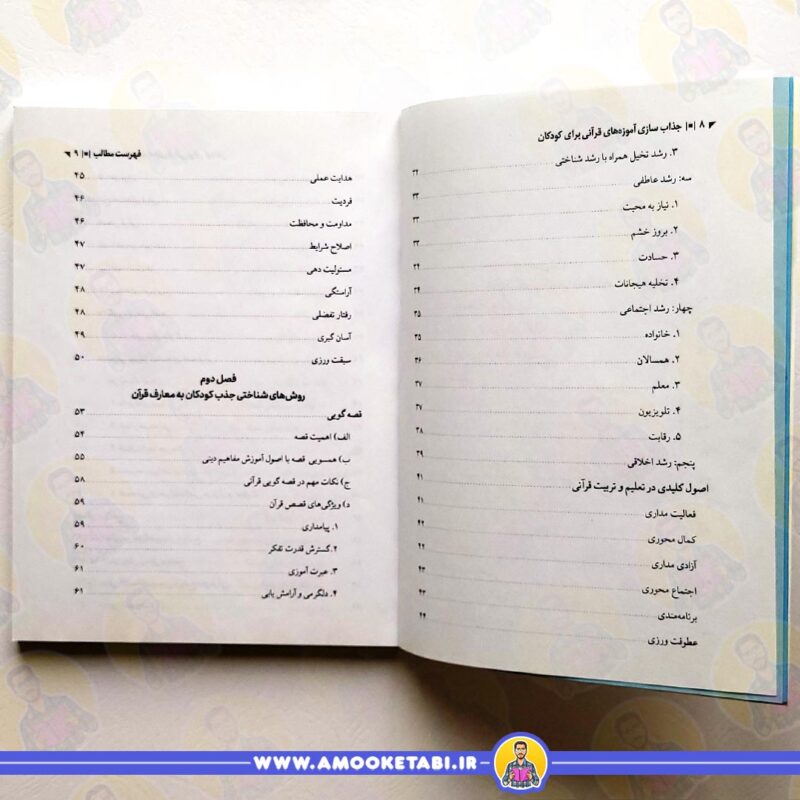 ۸ |■| جذاب سازی آموزه‌های قرآنی برای کودکان
۳. رشد تخیل همراه با رشد شناختی ۳۲
سه: رشد عاطفی ۳۳
۱. نیاز به محبت ۳۳
۲. بروز خشم ۳۳
۳. حسادت ۳۴
۴. تخلیه هیجانات ۳۴
چهار: رشد اجتماعی ۳۵
۱. خانواده ۳۵
۲. همسالان ۳۶
۳. معلم ۳۷
۴. تلویزیون ۳۷
۵. رقابت ۳۸
پنجم: رشد اخلاقی ۳۹
اصول کلیدی در تعلیم و تربیت قرآنی ۴۱
فعالیت مداری ۴۱
کمال محوری ۴۲
آزادی مداری ۴۲
اجتماع محوری ۴۳
برنامه‌مندی ۴۳
عطوفت ورزی ۴۴
فهرست مطالب |■| ۹
هدایت عملی ۴۵
فردیت ۴۶
مداومت و محافظت ۴۶
اصلاح شرایط ۴۷
مسئولیت دهی ۴۷
آراستگی ۴۸
رفتار تفضلی ۴۸
آسان گیری ۴۹
سبقت ورزی ۵۰
فصل دوم
روش‌های شناختی جذب کودکان به معارف قرآن
قصه گویی ۵۳
الف) اهمیت قصه ۵۴
ب) همسویی قصه با اصول آموزش مفاهیم دینی ۵۵
ج) نکات مهم در قصه گویی قرآنی ۵۸
د) ویژگی‌های قصص قرآن ۵۹
۱. پیامداری ۵۹
۲. گسترش قدرت تفکر ۶۰
۳. عبرت آموزی ۶۱
۴. دلگرمی و آرامش یابی ۶۱
WWW.AMOOKETABI.IR